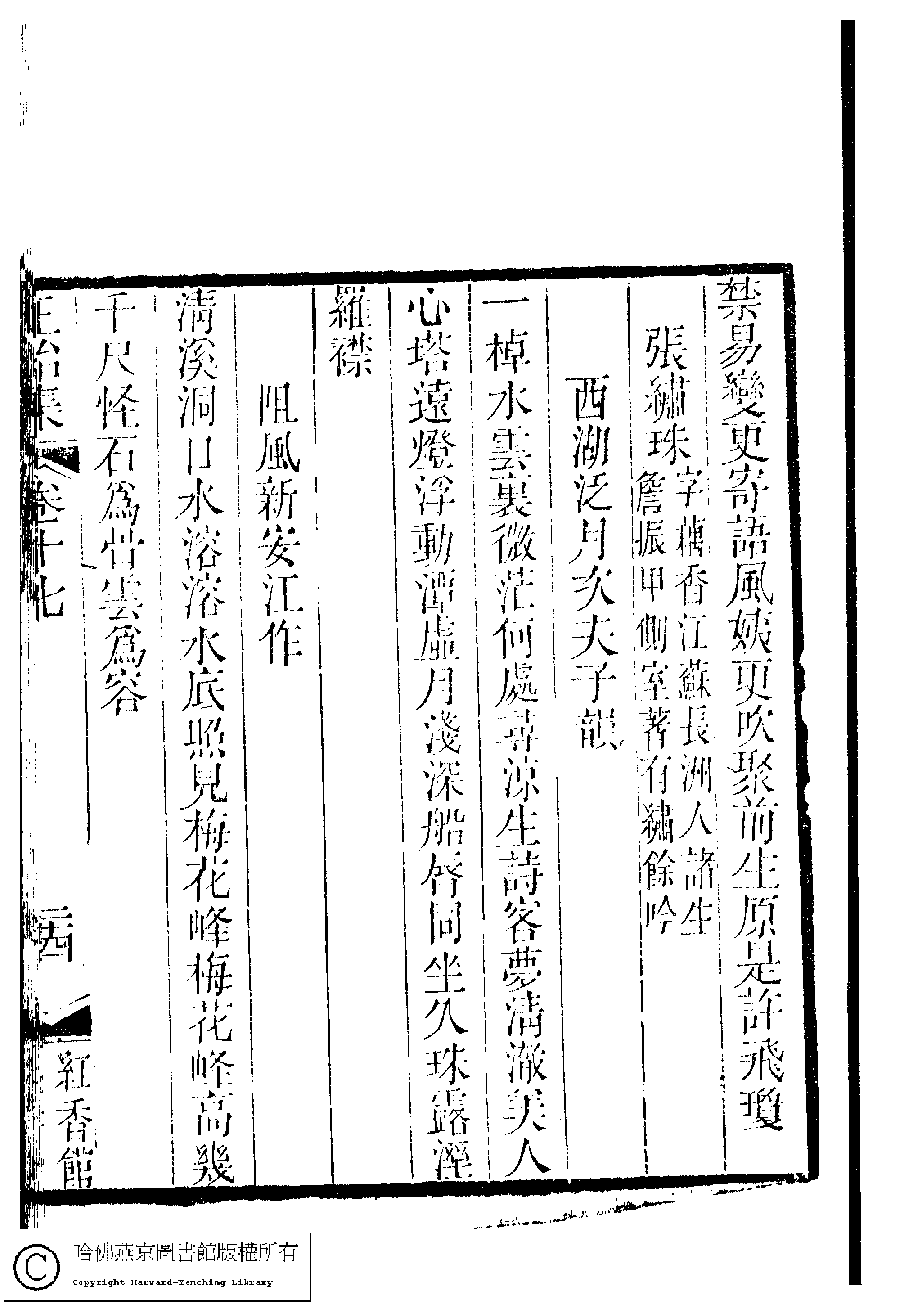 禁易變更寄語風姨更吹聚前生原是許飛瓊
張繡珠
字藕香江蘇長洲人諸生
詹振甲側室著有繡餘吟
西湖泛月次夫子韻
一棹水雲裏微茫何處尋涼生詩客夢清澈美人
心塔遠燈浮動潭虛月淺深船唇同坐久珠露溼
羅襟
阻風新安江作
清溪洞口水溶溶水底照見梅花峰梅花峰高幾
千尺怪石爲骨雲爲容
正始集 卷十七
二四
紅香館
哈佛燕京圖書館版權所有
Copyright Harvard-Yenching Library